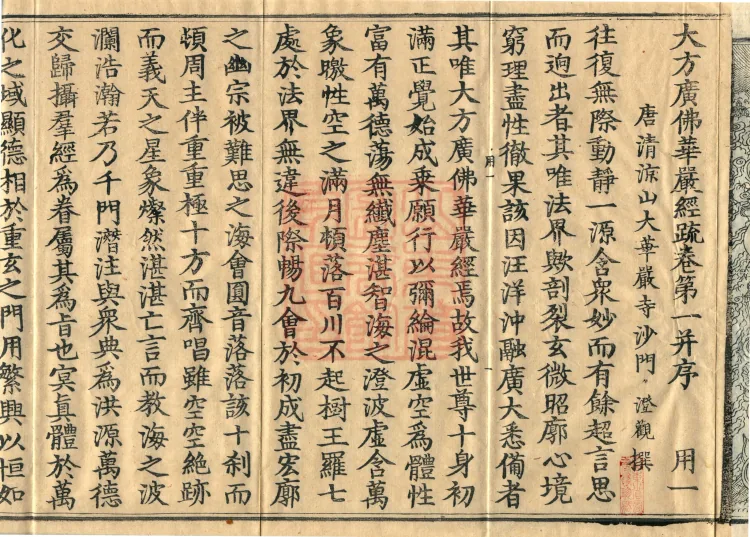 大方廣佛華嚴經疏卷第一并序 用一
唐清涼山大華嚴寺沙門 澄觀 撰
往復無際動靜一源含衆妙而有餘超言思
而逈出者其唯法界歟剖裂玄微昭廓心境
窮理盡性徹果該因汪洋沖融廣大悉備者
用一
其唯大方廣佛華嚴經焉故我世尊十身初
滿正覺始成乗願行以彌綸混虛空爲體性
富有萬德蕩無纖塵湛智海之澄波虛含萬
象曒性空之滿月頓落百川不起樹王羅七
處於法界無違後際暢九會於初成盡宏廓
之幽宗被難思之海會圓音落落該十刹而
頓周主伴重重極十方而齊唱雖空空絶跡
而義天之星象燦然湛湛亡言而教海之波
瀾浩瀚若乃千門潛注與衆典爲洪源萬德
交歸攝羣經爲眷屬其爲旨也冥眞體於萬
化之域顯德相於重玄之門用繁興以恒如